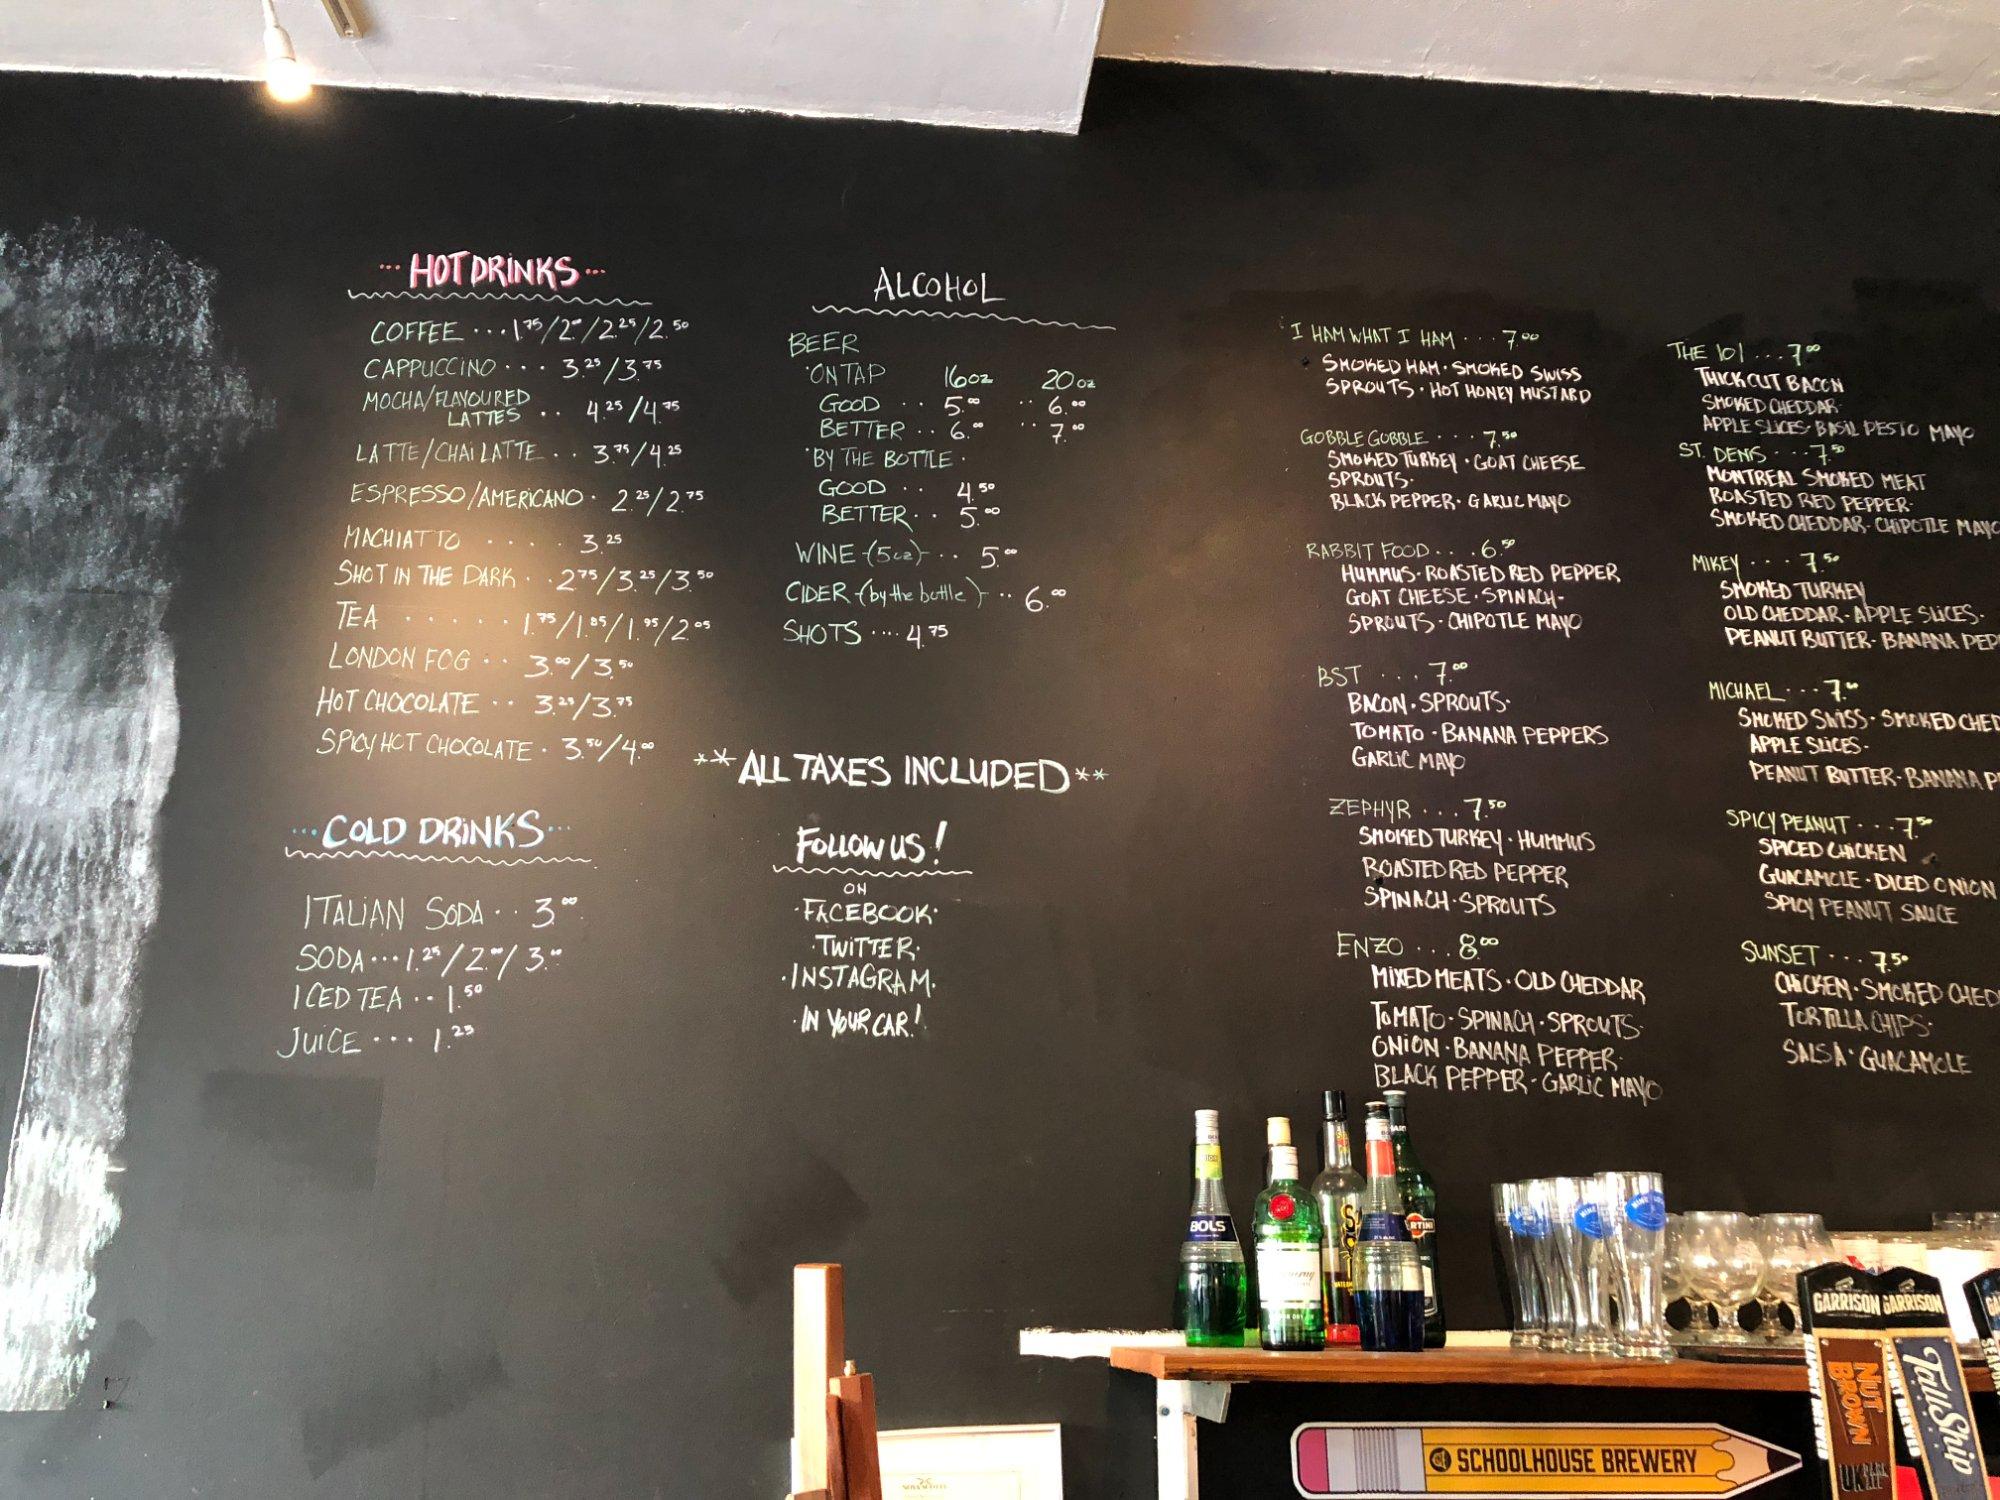 ··· HOT DRINKS ···
COFFEE ··· 1.75/2.00/2.25/2.50
CAPPUCCINO ··· 3.25/3.75
MOCHA/FLAVOURED
LATTES ·· 4.25/4.75
LATTE/CHAI LATTE ·· 3.75/4.25
ESPRESSO/AMERICANO · 2.25/2.75
MACHIATTO ···· 3.25
SHOT IN THE DARK ·· 2.75/3.25/3.50
TEA ····· 1.75/1.85/1.95/2.05
LONDON FOG ·· 3.00/3.50
HOT CHOCOLATE ·· 3.25/3.75
SPICY HOT CHOCOLATE · 3.50/4.00
··· COLD DRINKS ···
ITALIAN SODA ·· 3.00
SODA ··· 1.25/2.00/3.00
ICED TEA ·· 1.50
JUICE ··· 1.25
ALCOHOL
BEER
·ON TAP 16oz 20oz
GOOD ·· 5.00 ·· 6.00
BETTER ·· 6.00 ·· 7.00
·BY THE BOTTLE·
GOOD ·· 4.50
BETTER ·· 5.00
WINE (5oz) ·· 5.00
CIDER (by the bottle) ·· 6.00
SHOTS ···· 4.75
**ALL TAXES INCLUDED**
FOLLOW US!
ON
·FACEBOOK·
·TWITTER·
·INSTAGRAM·
·IN YOUR CAR!
I HAM WHAT I HAM ··· 7.00
SMOKED HAM · SMOKED SWISS
SPROUTS · HOT HONEY MUSTARD
GOBBLE GOBBLE ··· 7.50
SMOKED TURKEY · GOAT CHEESE
SPROUTS·
BLACK PEPPER · GARLIC MAYO
RABBIT FOOD ··· 6.50
HUMMUS · ROASTED RED PEPPER
GOAT CHEESE · SPINACH·
SPROUTS · CHIPOTLE MAYO
BST ··· 7.00
BACON · SPROUTS·
TOMATO · BANANA PEPPERS
GARLIC MAYO
ZEPHYR ··· 7.50
SMOKED TURKEY · HUMMUS
ROASTED RED PEPPER
SPINACH · SPROUTS
ENZO ··· 8.00
MIXED MEATS · OLD CHEDDAR
TOMATO · SPINACH · SPROUTS·
ONION · BANANA PEPPER·
BLACK PEPPER · GARLIC MAYO
THE 101 ··· 7.00
THICK CUT BACON
SMOKED CHEDDAR·
APPLE SLICES · BASIL PESTO MAYO
ST. DENIS ··· 7.50
MONTREAL SMOKED MEAT
ROASTED RED PEPPER·
SMOKED CHEDDAR · CHIPOTLE MAYO
MIKEY ··· 7.50
SMOKED TURKEY
OLD CHEDDAR · APPLE SLICES·
PEANUT BUTTER · BANANA PEP
MICHAEL ··· 7.00
SMOKED SWISS · SMOKED CHED
APPLE SLICES·
PEANUT BUTTER · BANANA P
SPICY PEANUT ··· 7.50
SPICED CHICKEN
GUACAMOLE · DICED ONION
SPICY PEANUT SAUCE
SUNSET ··· 7.50
CHICKEN · SMOKED CHED
TORTILLA CHIPS·
SALSA · GUACAMOLE
BOLS
GARRISON
NUT
BROWN
GARRISON
Tall Ship
SCHOOLHOUSE BREWERY